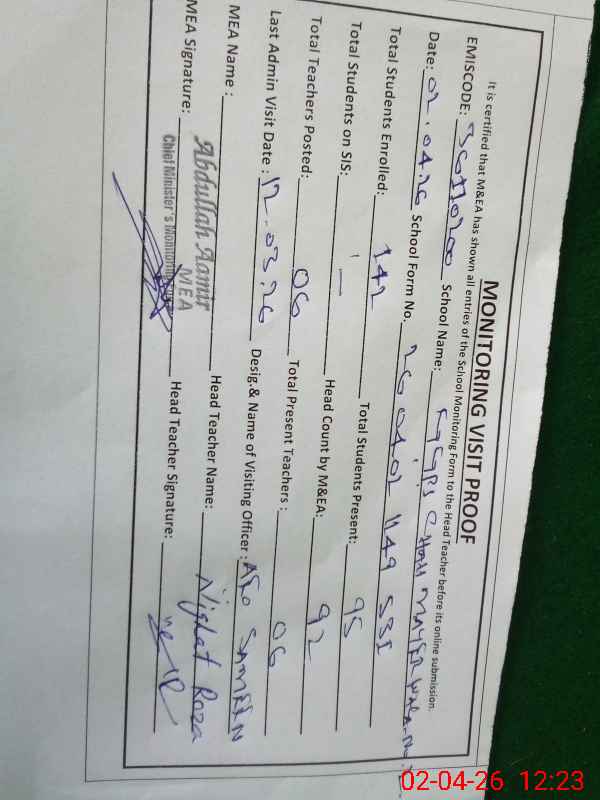 MONITORING VISIT PROOF
It is certified that M&EA has shown all entries of the School Monitoring Form to the Head Teacher before its online submission.
EMISCODE: 36110200 School Name: GGPS CHAH
Date: 02.04.26 School Form No. 260402 1149 531
Total Students Enrolled: 142 Total Students Present: 95
Total Students on SIS: — Head Count by M&EA: 92
Total Teachers Posted: 06 Total Present Teachers: 06
Last Admin Visit Date: 12.03.26 Desig.& Name of Visiting Officer: SAMREEN
MEA Name: Abdullah Aamir Head Teacher Name: Nighat Roza
MEA
Chief Minister's Monitoring
MEA Signature: Head Teacher Signature:
02-04-26 12:23